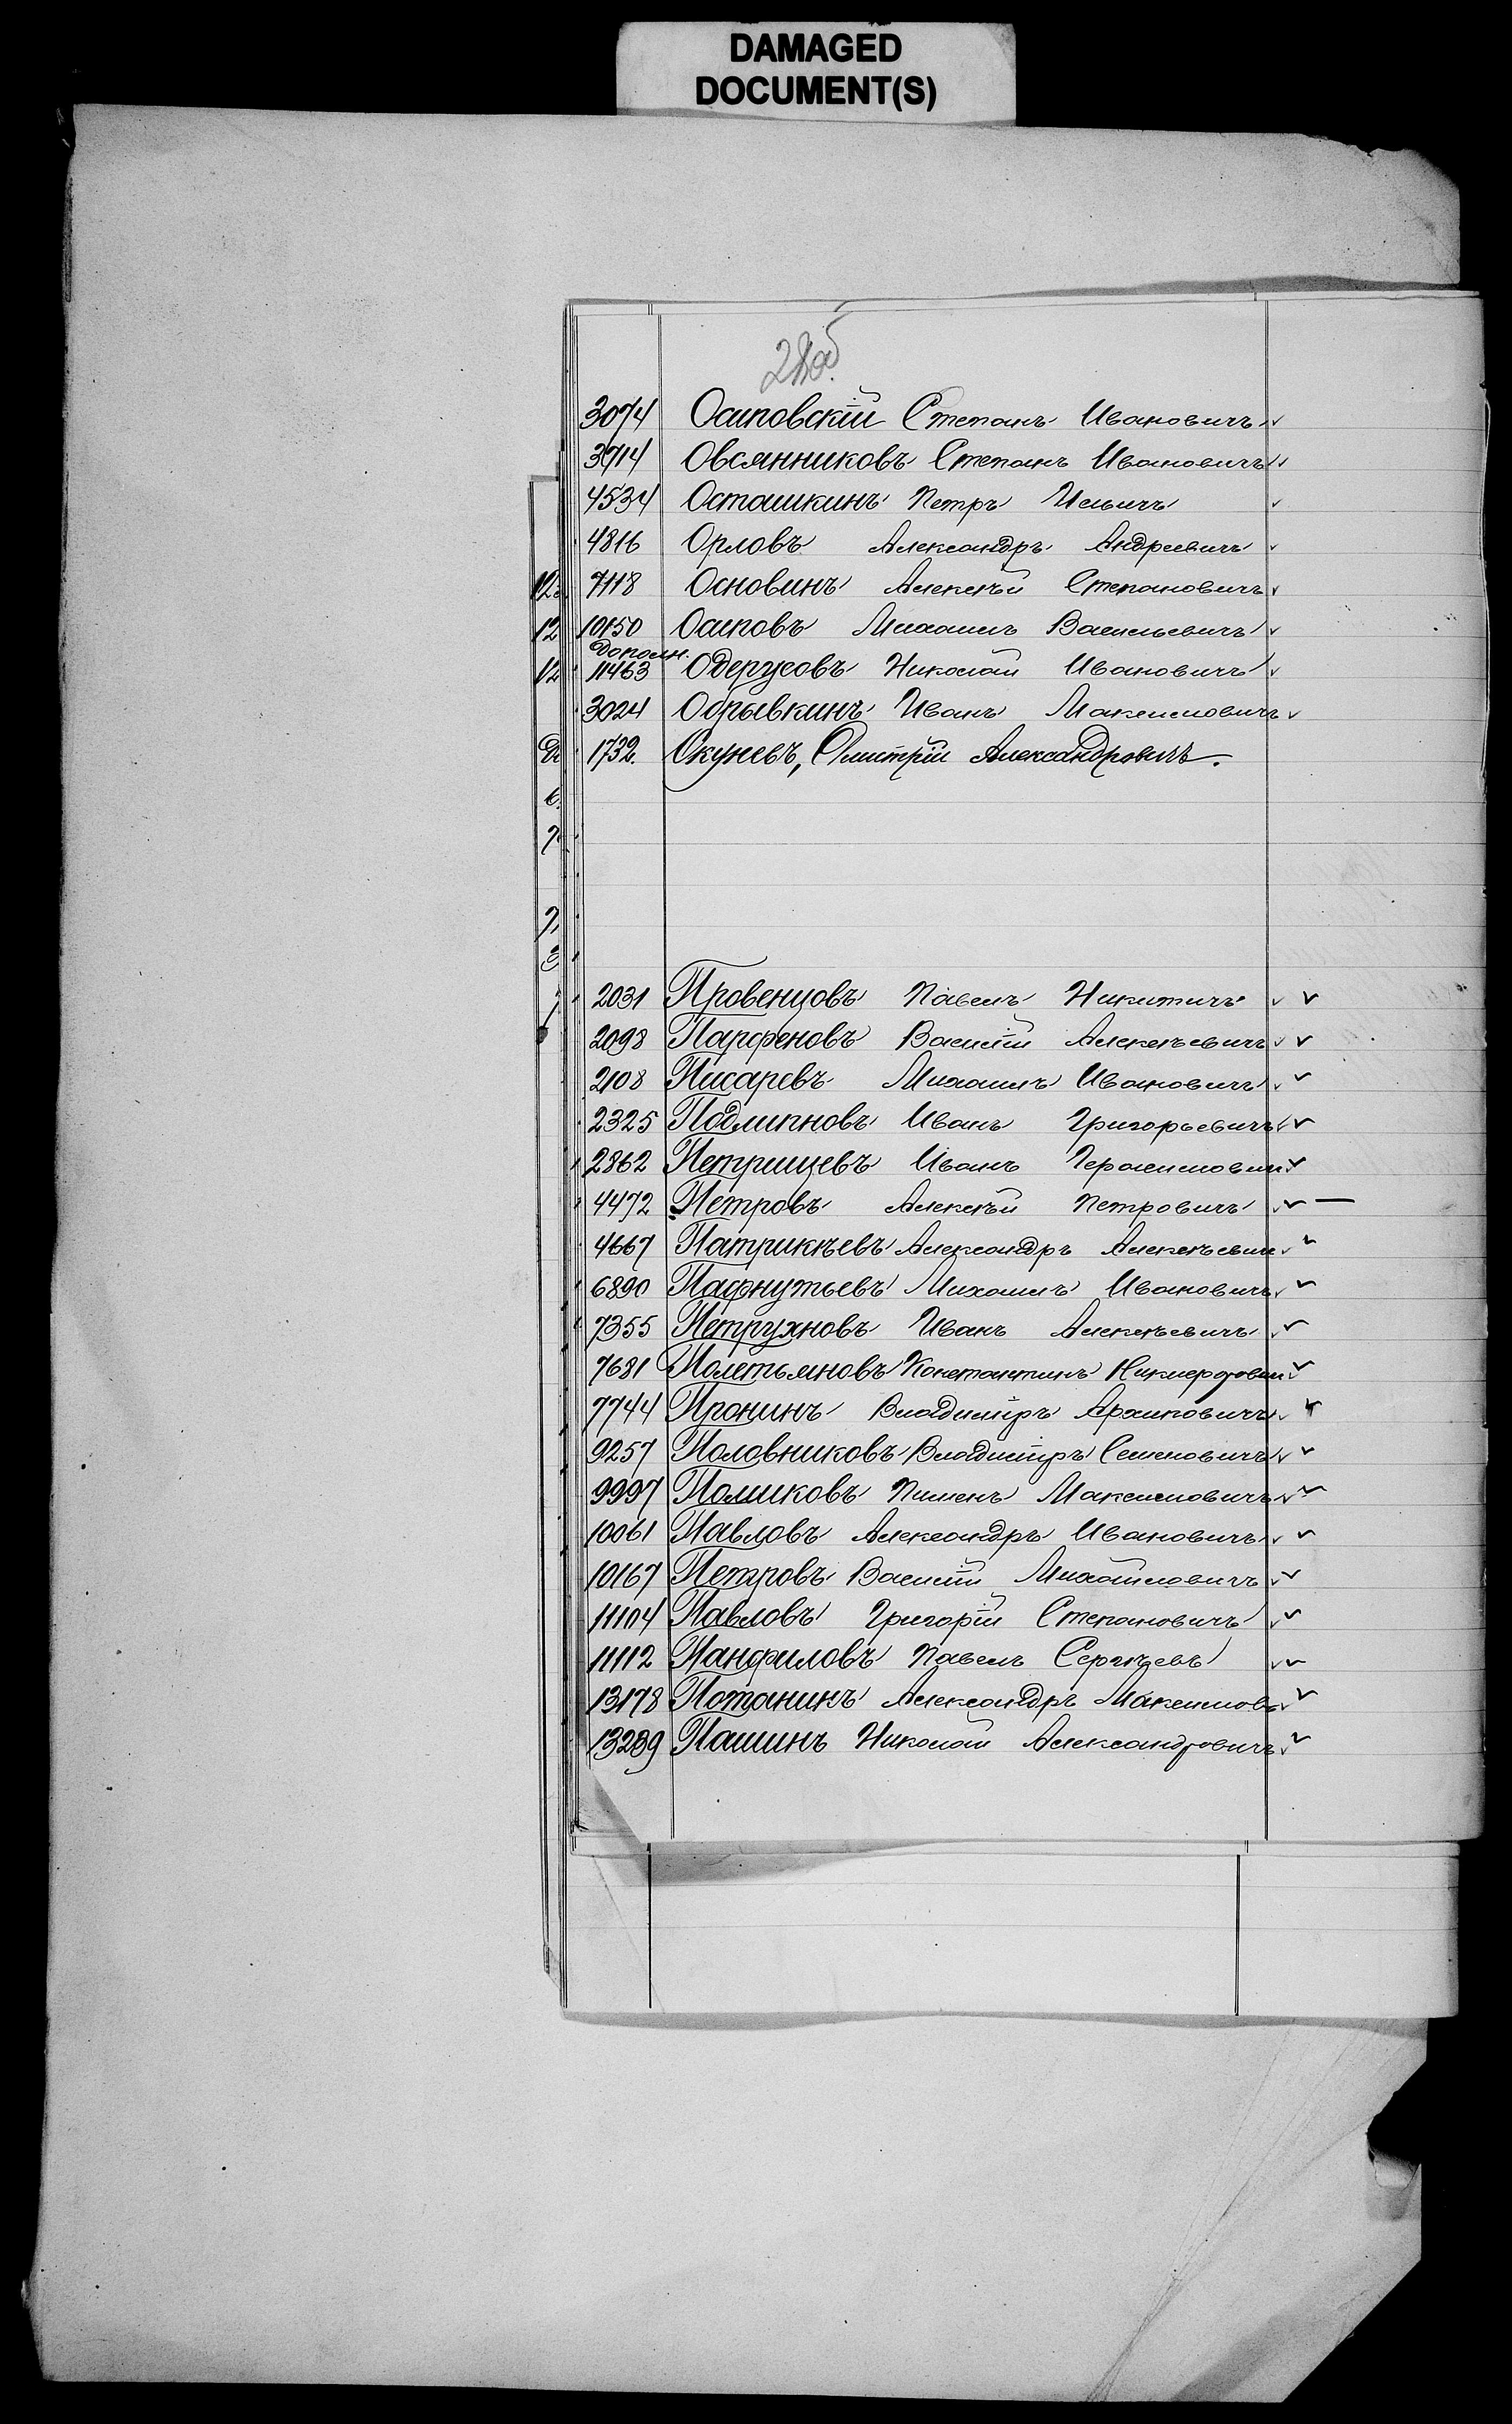 DAMAGED
DOCUMENT(S)
3074 Осиповскій Степанъ Ивановичъ
3714 Овсянниковъ Степанъ Ивановичъ
4534 Осташкинъ Петръ Ильичъ
4816 Орловъ Александръ Андреевичъ
7118 Основинъ Алексѣй Степановичъ
10150 Осиповъ Михаилъ Васильевичъ
Дополн.
11463 Одерусовъ Николай Ивановичъ
3024 Обрывкинъ Иванъ Максимовичъ
1732. Окуневъ, Дмитрій Александровичъ.
2031 Провенцовъ Павелъ Никитичъ
2098 Парфеновъ Василій Алексѣевичъ
2108 Писаревъ Михаилъ Ивановичъ
2325 Подлипновъ Иванъ Григорьевичъ
2862 Петрищевъ Иванъ Герасимович
4472 Петровъ Алексѣй Петровичъ
4667 Патрикѣевъ Александръ Алексѣевич
6890 Пафнутьевъ Михаилъ Ивановичъ
7355 Петрухновъ Иванъ Алексѣевичъ
7681 Полетьяновъ Константинъ
7744 Пронинъ Владиміръ Архиповичъ
9257 Половниковъ Владиміръ Семеновичъ
9997 Поликовъ Пименъ Максимовичъ
10061 Павловъ Александръ Ивановичъ
10167 Петровъ Василій Михайловичъ
11104 Павловъ Григорій Степановичъ
11112 Панфиловъ Павелъ Сергѣевъ
13178 Потанинъ Александръ Максимов
13289 Пашинъ Николай Александровичъ